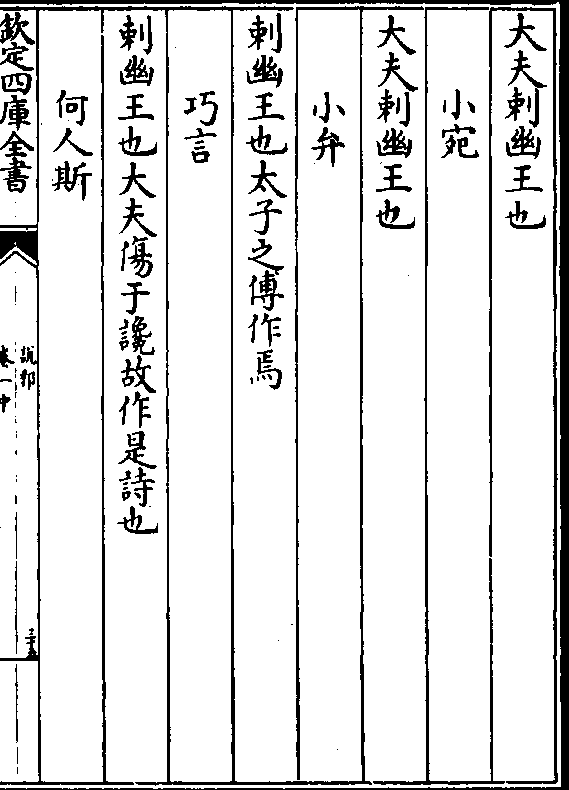 大夫刺幽王也
小宛
大夫刺幽王也
小弁
刺幽王也太子之傅作焉
巧言
刺幽王也大夫傷于讒故作是詩也
何人斯
欽定四庫全書
說郛
卷一中
三十五